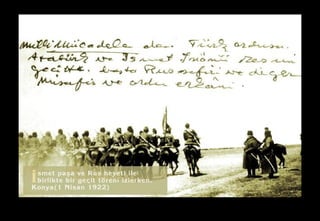 Milli Mücadele de. Türk ordusu.
Atatürk ve İsmet İnönü resmi
geçitte. başta Rus sefiri ve diğer
misafir ve ordu erkânı.
ismet paşa ve Rus heyeti ile
birlikte bir geçit töreni izlerken.
Konya(1 Nisan 1922)